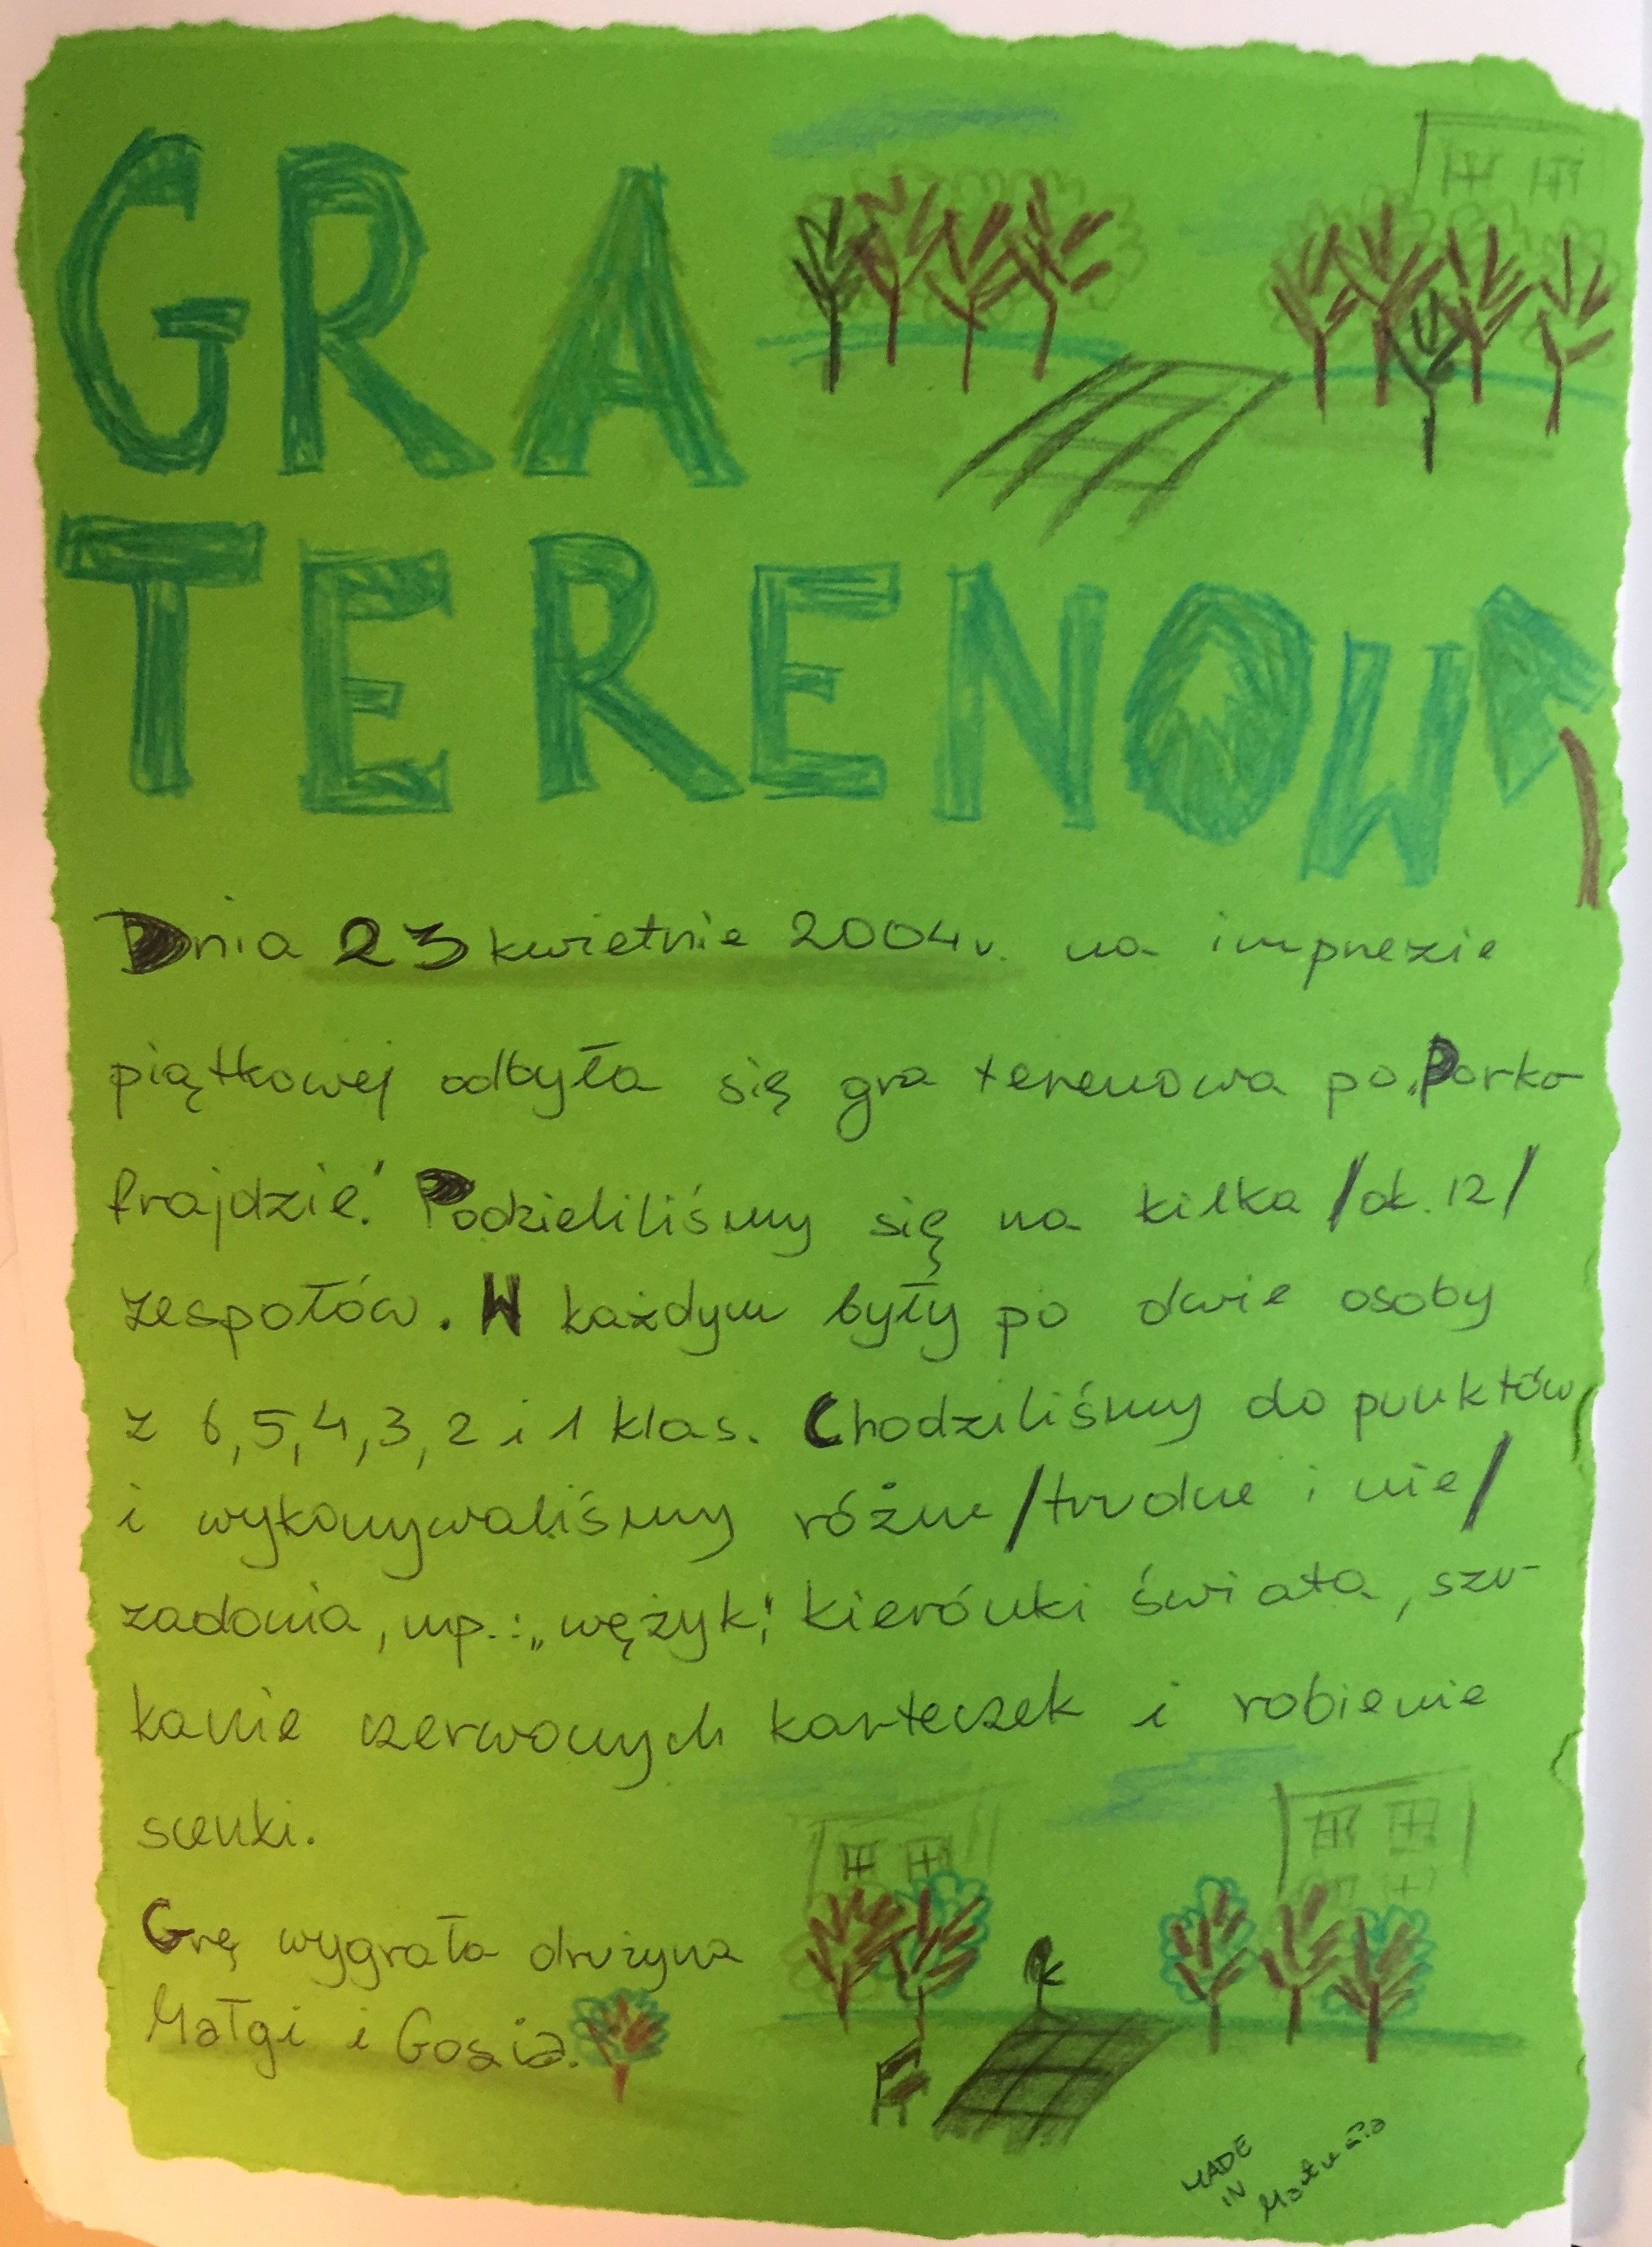 GRA
TERENOWA
Dnia 23 kwietnie 2004r. na imprezie
piątkowej odbyła się gra terenowa po "Parko
frajdzie". Podzieliliśmy się na kilka /ok. 12/
zespołów. W każdym były po dwie osoby
z 6, 5, 4, 3, 2 i 1 klas. Chodziliśmy do punktów
i wykonywaliśmy różne /trudne i nie/
zadania, np.: „wężyk", kierónki świata, szu-
kanie czerwonych karteczek i robienie
scenki.
Grę wygrała drużyna
Małgi i Gosia.
MADE
IN